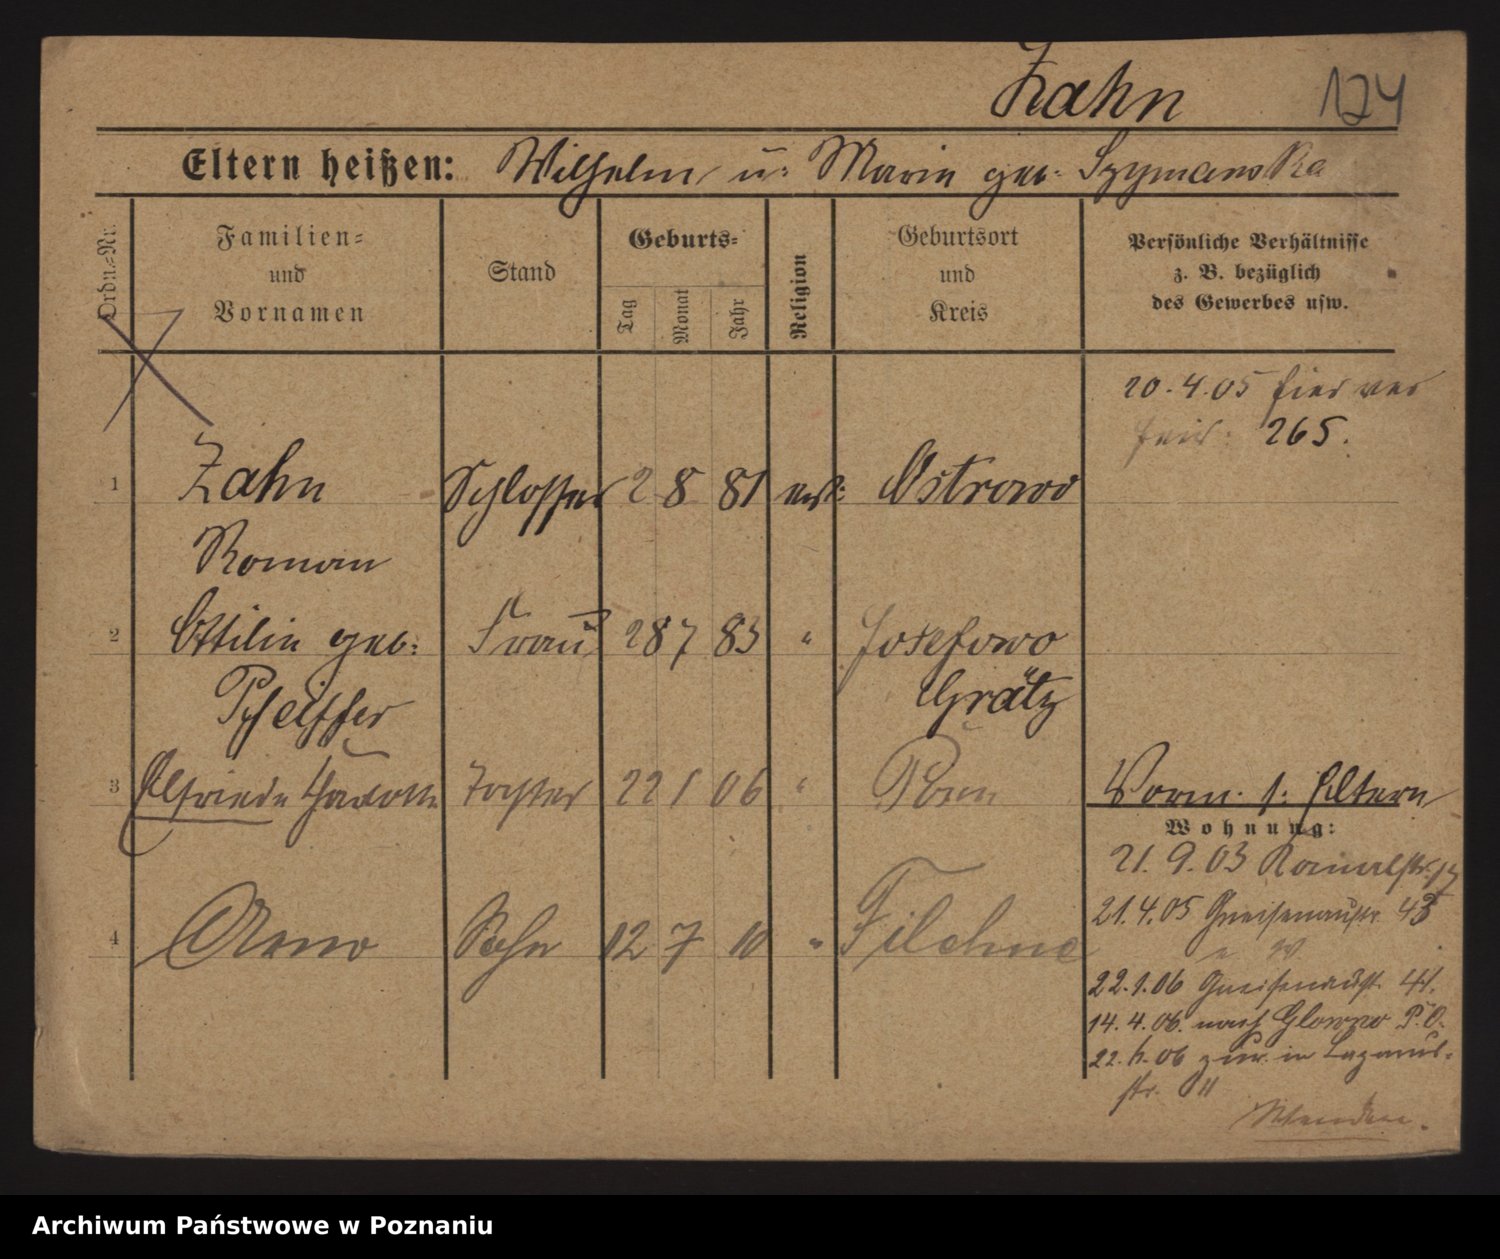 Zahn 124
Eltern heißen: Wilhelm u: Marie geb: Szymanska
Ordn.=Nr.
Familien=
und
Vornamen
Stand
Geburts=
Tag
Monat
Jahr
Religion
Geburtsort
und
Kreis
Persönliche Verhältnisse
z. B. bezüglich
des Gewerbes usw.
20.4.05 hier ver
heir: 265.
1 Zahn Schlosser 2 8 81 Ostrowo
Roman
2 Ottilie geb: Frau 28 7 83 " Josefowo
Pfeiffer Grätz
3 Elfriede Tochter 22 1 06 " Posen
Vorm. s: Eltern
Wohnung:
21.9.03
21.4.05 Gneisenaustr 43
4 Arno Sohn 12 7 10 " Filehne
22.1.06 Gneisenaust. 41.
14.4.06. nach Glowno P.O.
22.6.06 zur. in Lazarus-
str. 11
Wenden.
Archiwum Państwowe w Poznaniu